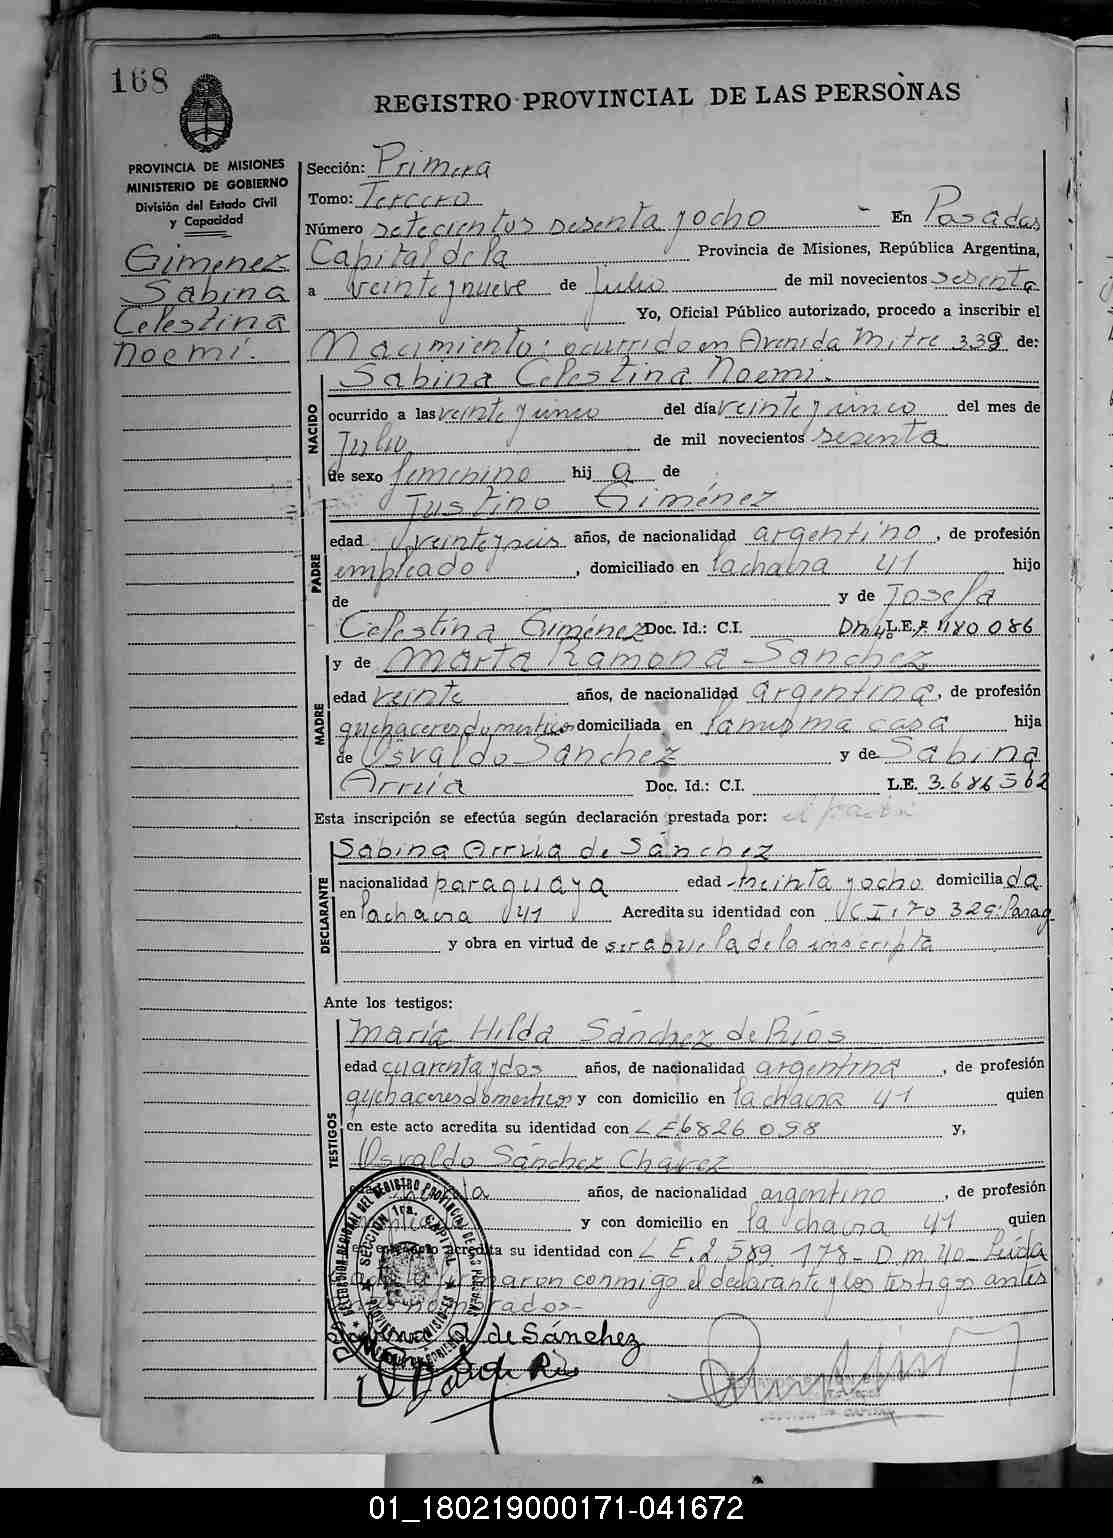 168
REGISTRO PROVINCIAL DE LAS PERSONAS
PROVINCIA DE MISIONES
MINISTERIO DE GOBIERNO
División del Estado Civil
y Capacidad
Gimenez
Sabina
Celestina
Noemi.
Sección: Primera
Tomo: Tercero
Número setecientos sesenta y ocho - En Posadas
Capital de la Provincia de Misiones, República Argentina,
a veinte y nueve de Julio de mil novecientos sesenta
Yo, Oficial Público autorizado, procedo a inscribir el
Nacimiento: ocurrido en Avenida Mitre 339 de:
NACIDO
Sabina Celestina Noemi.
ocurrido a las veinte y cinco del día veinte y cinco del mes de
Julio de mil novecientos sesenta
de sexo femenino hij a de
PADRE
Justino Giménez
edad veinte y seis años, de nacionalidad argentino, de profesión
empleado, domiciliado en la chacra 41 hijo
de y de Josefa
Celestina Giménez Doc. Id.: C.I. D.m.40 L.E. 7.480.086
MADRE
y de Marta Ramona Sánchez
edad veinte años, de nacionalidad argentina, de profesión
quehaceres domesticos domiciliada en la misma casa hija
de Osvaldo Sánchez y de Sabina
Arrúa Doc. Id.: C.I. L.E. 3.686562
Esta inscripción se efectúa según declaración prestada por: el
DECLARANTE
Sabina Arrúa de Sánchez
nacionalidad paraguaya edad treinta y ocho domicilia da
en la chacra 41 Acredita su identidad con C I: 70 329: Parag
y obra en virtud de ser abuela de la inscripta
Ante los testigos:
TESTIGOS
María Hilda Sánchez de Ríos
edad cuarenta y dos años, de nacionalidad argentina, de profesión
quehaceres domesticos y con domicilio en la chacra 41 quien
en este acto acredita su identidad con L E 6826 098 y,
Osvaldo Sánchez Chavez
años, de nacionalidad argentino, de profesión
y con domicilio en la chacra 41 quien
acredita su identidad con L E. 2 589 178 - D.m.40 - Leída
firmaron conmigo el declarante y los testigos antes
nombrados -
DELEGACION REGIONAL DEL REGISTRO PROVINCIAL DE LAS PERSONAS
SECCION 1ra. CAPITAL
A de Sánchez
01_180219000171-041672